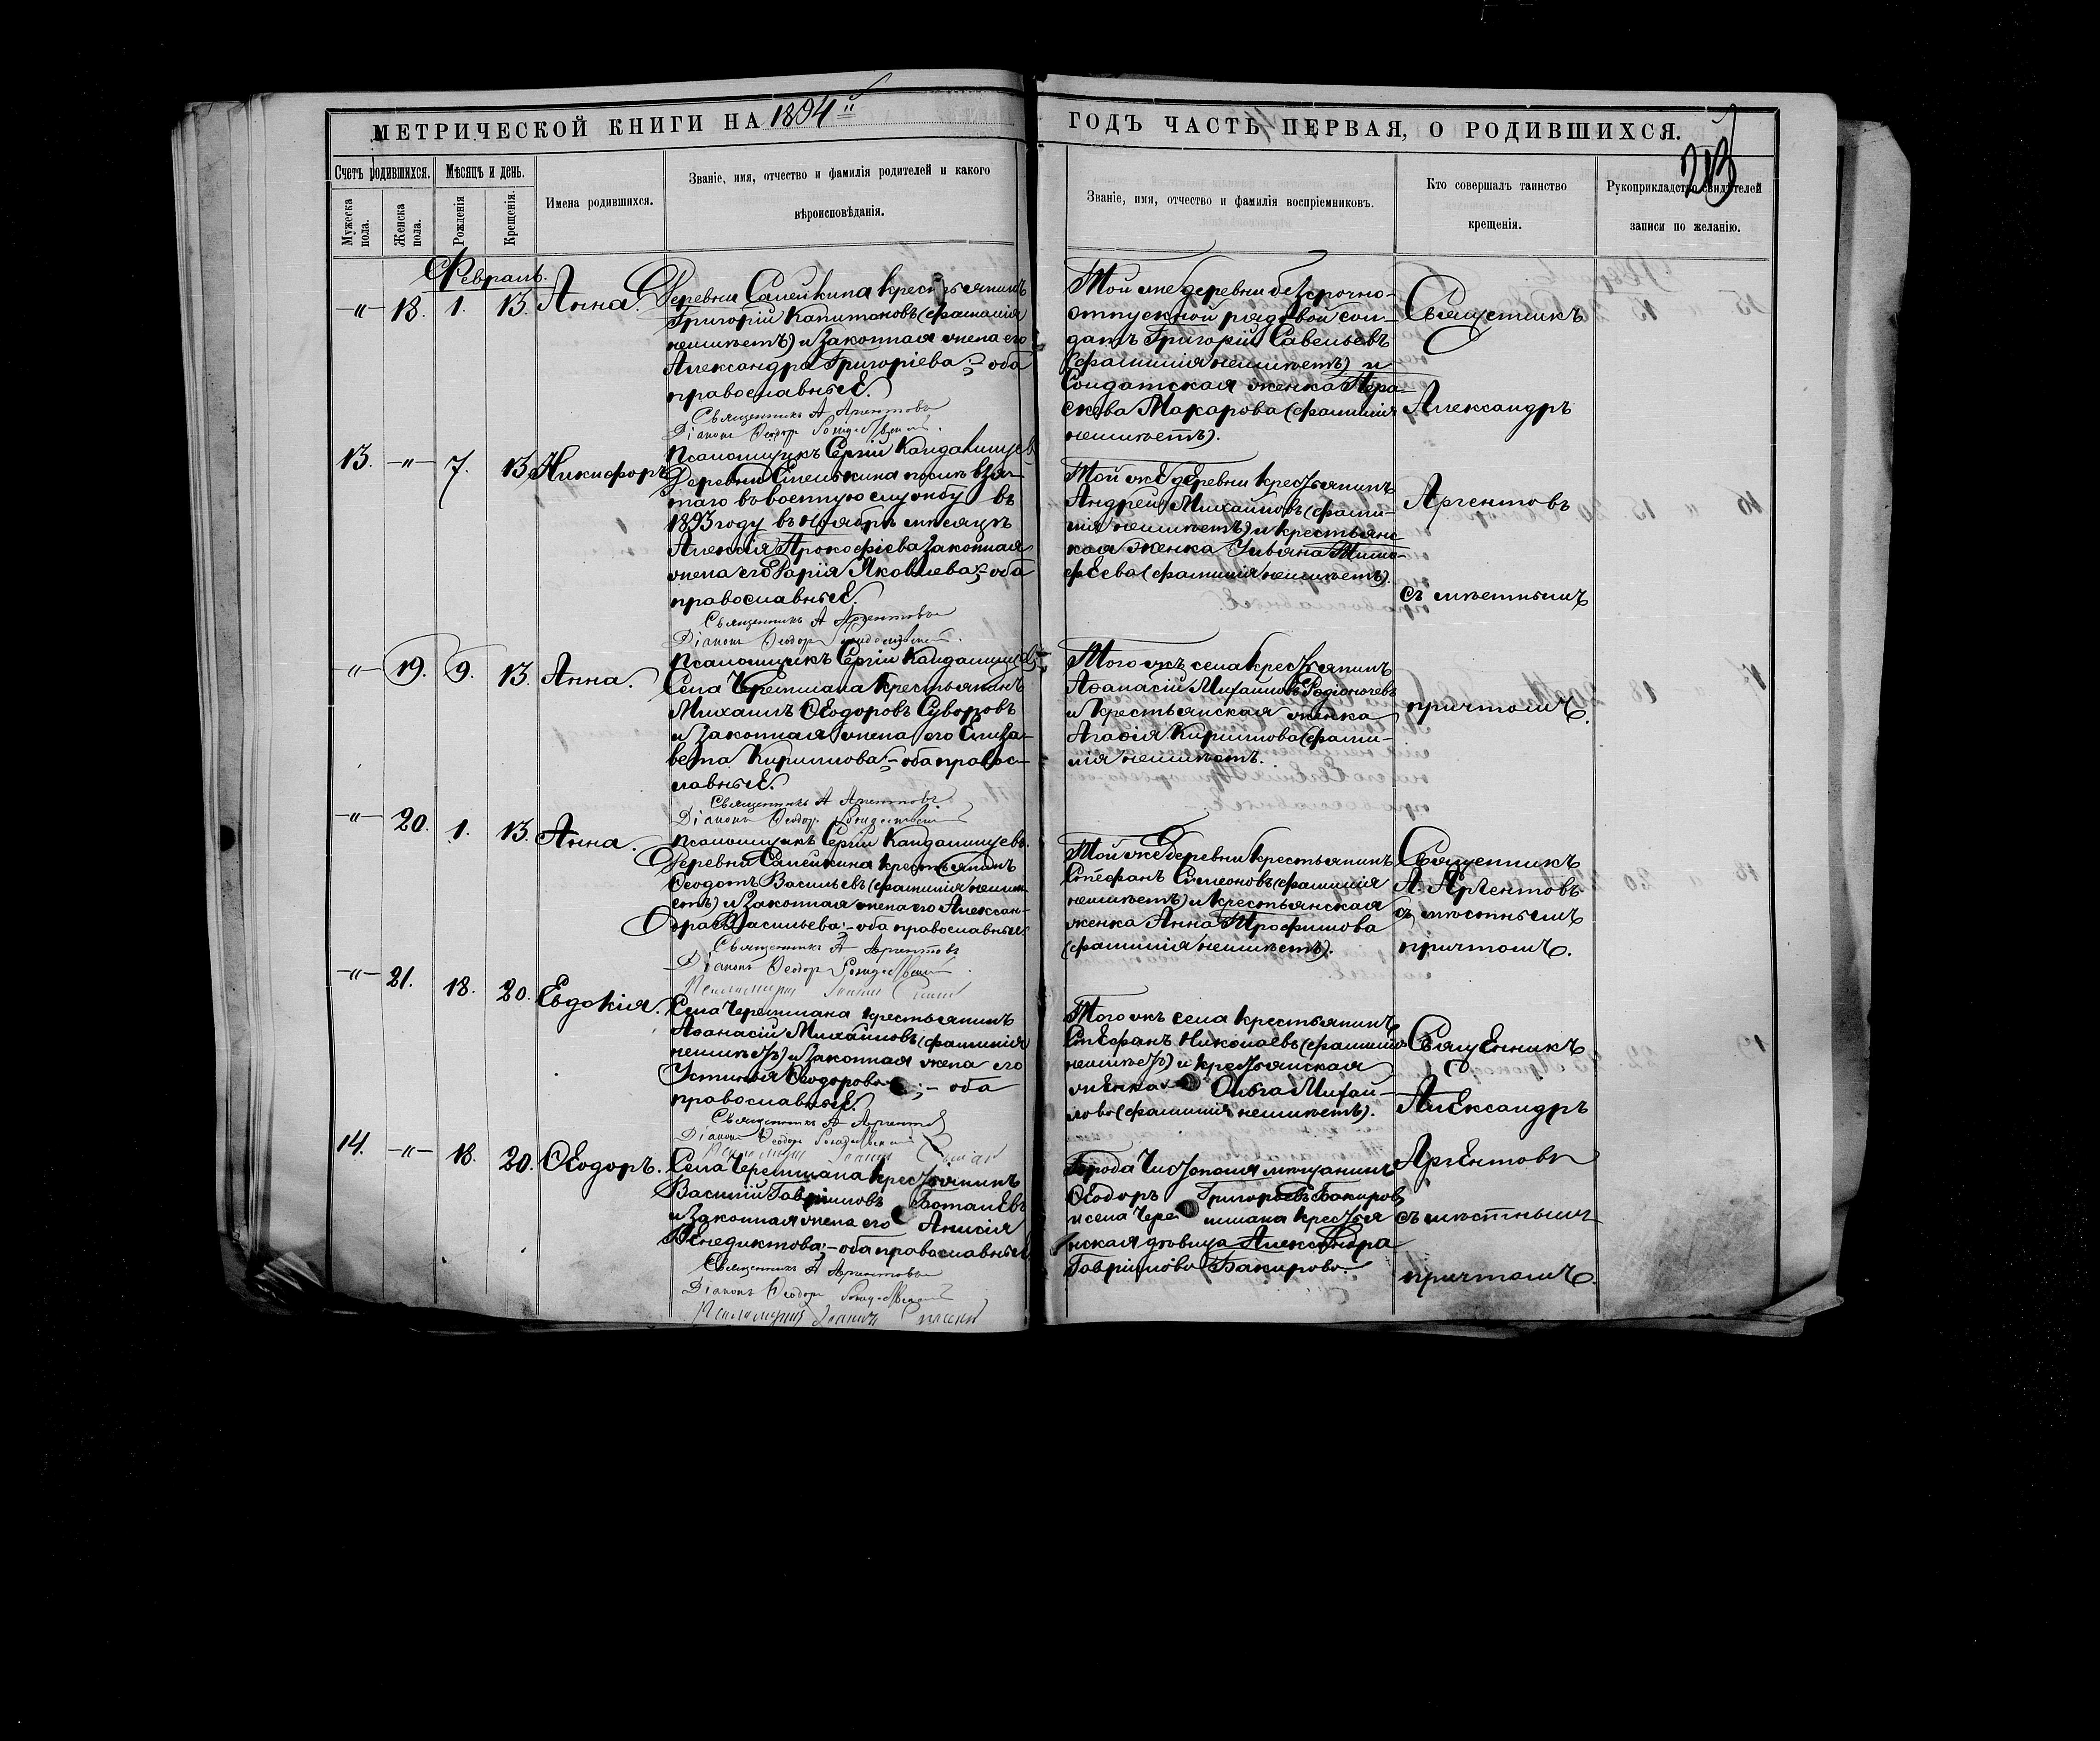 МЕТРИЧЕСКОЙ КНИГИ НА 1894й
ГОДЪ ЧАСТЬ ПЕРВАЯ, О РОДИВШИХСЯ.
213
Счетъ родившихся.
Мѣсяцъ и день.
Имена родившихся.
Званіе, имя, отчество и фамилія родителей и какого
вѣроисповѣданія.
Званіе, имя, отчество и фамилія воспріемниковъ.
Кто совершалъ таинство
крещенія.
Рукоприкладство свидѣтелей
записи по желанію.
Мужеска
пола.
Женска
пола.
Рожденія
Крещенія.
Февраль.
-"- 18. 1. 13. Анна.
Деревни Сапейкина крестьянинъ
Григорій Капитоновъ (фамиліи
неимѣетъ) и законная жена его
Александра Григоріева; - оба
православные.
Священникъ А Аргентовъ
Діаконъ Ѳеодоръ Рождественскій.
Псаломщикъ Сергій Кандалинцевъ
Той же деревни безсрочно-
отпускной рядовой сол-
датъ Григорій Савельевъ
(фамиліи неимѣетъ) и
Солдатская женка Пара-
скева Макарова (фамиліи
неимѣетъ).
Священникъ
Александръ
Аргентовъ
съ мѣстнымъ
причтомъ.
13. -"- 7. 13 Никифоръ
Деревни послѣ взя-
таго въ военную службу въ
1893 году въ Ноябрѣ мѣсяцѣ
Алексія Прокофіева законная
жена его Дарія Яковлева; - оба
православные.
Священникъ А Аргентовъ
Діаконъ Ѳеодоръ Рождественскій.
Псаломщикъ Сергій Кандалинцевъ
Той же деревни крестьянинъ
Андрей Михайловъ (фами-
ліи неимѣетъ) и крестьянс-
кая женка Ульяна Тимо-
феева (фамиліи неимѣетъ).
-"- 19. 9. 13. Анна.
Села Черемшана крестьянинъ
Михаилъ Ѳеодоровъ Суворовъ
и законная жена его Елиза-
вета Кириллова; - оба правос-
лавные.
Священникъ А Аргентовъ
Діаконъ Ѳеодоръ Рождественскій
Псаломщикъ Сергій Кандалинцевъ.
Того жъ села крестьянинъ
Аѳанасій Михайловъ Родіонычевъ
и крестьянская женка
Агафія Кириллова (фами-
ліи неимѣетъ.
-"- 20. 1. 13. Анна.
Деревни Сапейкина крестьянинъ
Ѳеодотъ Васильевъ (фамиліи неимѣ-
етъ) и законная жена его Алексан-
дра Васильева; - оба православные.
Священникъ А Аргентовъ
Діаконъ Ѳеодоръ Рождественскій
Псаломщикъ Іоаннъ
Той же деревни крестьянинъ
Стефанъ Симеоновъ (фамиліи
неимѣетъ) и крестьянская
женка Анна Трофимова
(фамиліи неимѣетъ).
Священникъ
А. Аргентовъ
съ мѣстнымъ
причтомъ.
-"- 21. 18. 20. Евдокія.
Села Черемшана крестьянинъ
Аѳанасій Михайловъ (фамиліи
неимѣетъ) и законная жена его
Устинья Ѳеодорова; - оба
православные.
Священникъ А Аргентовъ
Діаконъ Ѳеодоръ Рождественскій
Псаломщикъ Іоаннъ
Того жъ села крестьянинъ
Стефанъ Николаевъ (фамиліи
неимѣетъ) и крестьянская
женка Ольга Михай-
лова (фамиліи неимѣетъ).
Священникъ
Александръ
Аргентовъ
съ мѣстнымъ
причтомъ.
14. -"- 18. 20. Ѳеодоръ.
Села Черемшана крестьянинъ
Василій Гавріиловъ
и законная жена его Анисія
Венедиктова; - оба православные
Священникъ А Аргентовъ
Діаконъ Ѳеодоръ Рождественскій
Псаломщикъ Іоаннъ
Города Чистополя мѣщанинъ
Ѳеодоръ Григорьевъ Бакировъ
и села Черемшана крестья
нская дѣвица Александра
Гавріилова Бакирова.